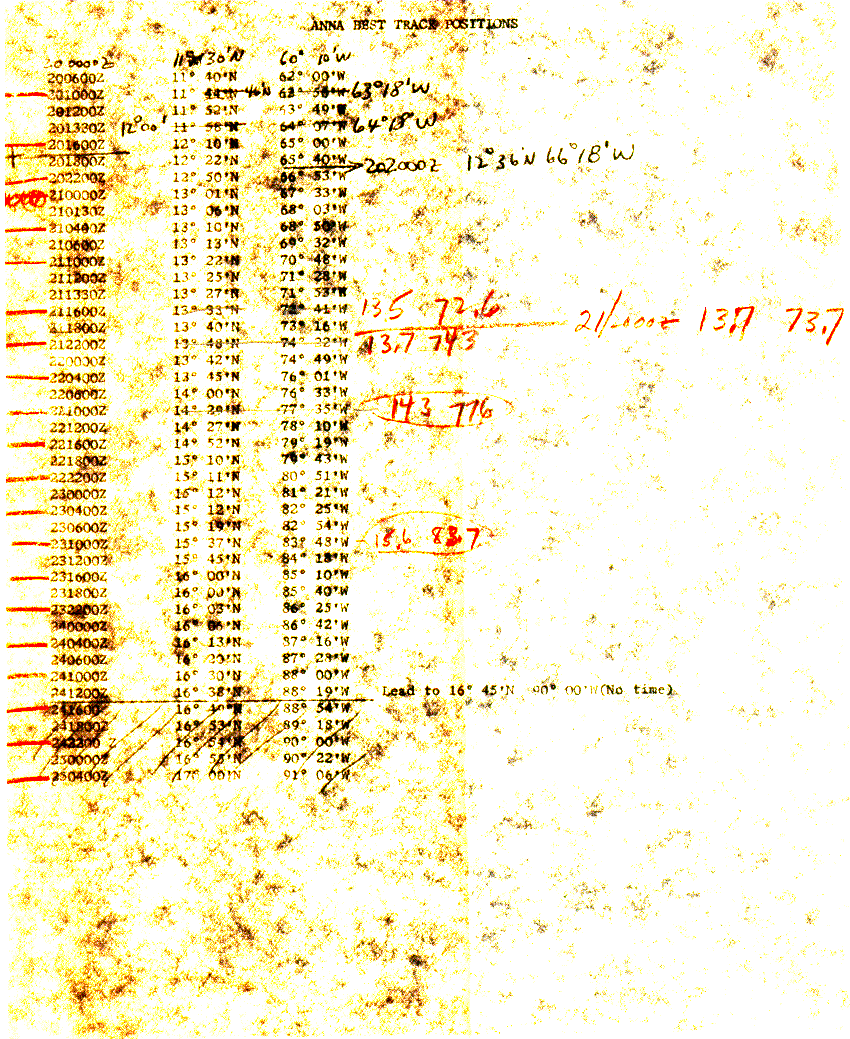 ANNA BEST TRACK POSITIONS
200000Z 11° 30'N 60° 10'W
200600Z 11° 40'N 62° 00'W
201000Z 11° 44'N 46N 63°18'W
201200Z 11° 52'N 63° 49'W
201330Z 12°00' 11° 58'N 64° 07'W 64°18'W
201600Z 12° 10'N 65° 00'W
201800Z 12° 22'N 65° 40'W 202000Z 12°36'N 66°18'W
202200Z 12° 50'N 66° 53'W
210000Z 13° 01'N 67° 33'W
210130Z 13° 06'N 68° 03'W
210400Z 13° 10'N 68° 50'W
210600Z 13° 13'N 69° 32'W
211000Z 13° 22'N 70° 48'W
211200Z 13° 25'N 71° 28'W
211330Z 13° 27'N 71° 53'W
211600Z 13° 33'N 72° 41'W 13.5 72.6
211800Z 13° 40'N 73° 16'W 21/2000Z 13.7 73.7
212200Z 13° 48'N 74° 22'W 13.7 743
220000Z 13° 42'N 74° 49'W
220400Z 13° 45'N 76° 01'W
220600Z 14° 00'N 76° 33'W
221000Z 14° 20'N 77° 35'W 143 776
221200Z 14° 27'N 78° 10'W
221600Z 14° 52'N 79° 19'W
221800Z 15° 10'N 79° 43'W
222200Z 15° 11'N 80° 51'W
230000Z 15° 12'N 81° 21'W
230400Z 15° 12'N 82° 25'W
230600Z 15° 19'N 82° 54'W
231000Z 15° 37'N 83° 48'W 15.6 83.7
231200Z 15° 45'N 84° 18'W
231600Z 16° 00'N 85° 10'W
231800Z 16° 00'N 85° 40'W
232200Z 16° 03'N 86° 25'W
240000Z 16° 06'N 86° 42'W
240400Z 16° 13'N 87° 16'W
240600Z 16° 20'N 87° 28'W
241000Z 16° 30'N 88° 00'W
241200Z 16° 38'N 88° 19'W Lead to 16° 45'N 90° 00'W(No time)
241600 16° 49'N 88° 54'W
241800Z 16° 53'N 89° 18'W
242200 16° 54'N 90° 00'W
250000Z 16° 55'N 90° 22'W
250400Z 17° 00'N 91° 06'W